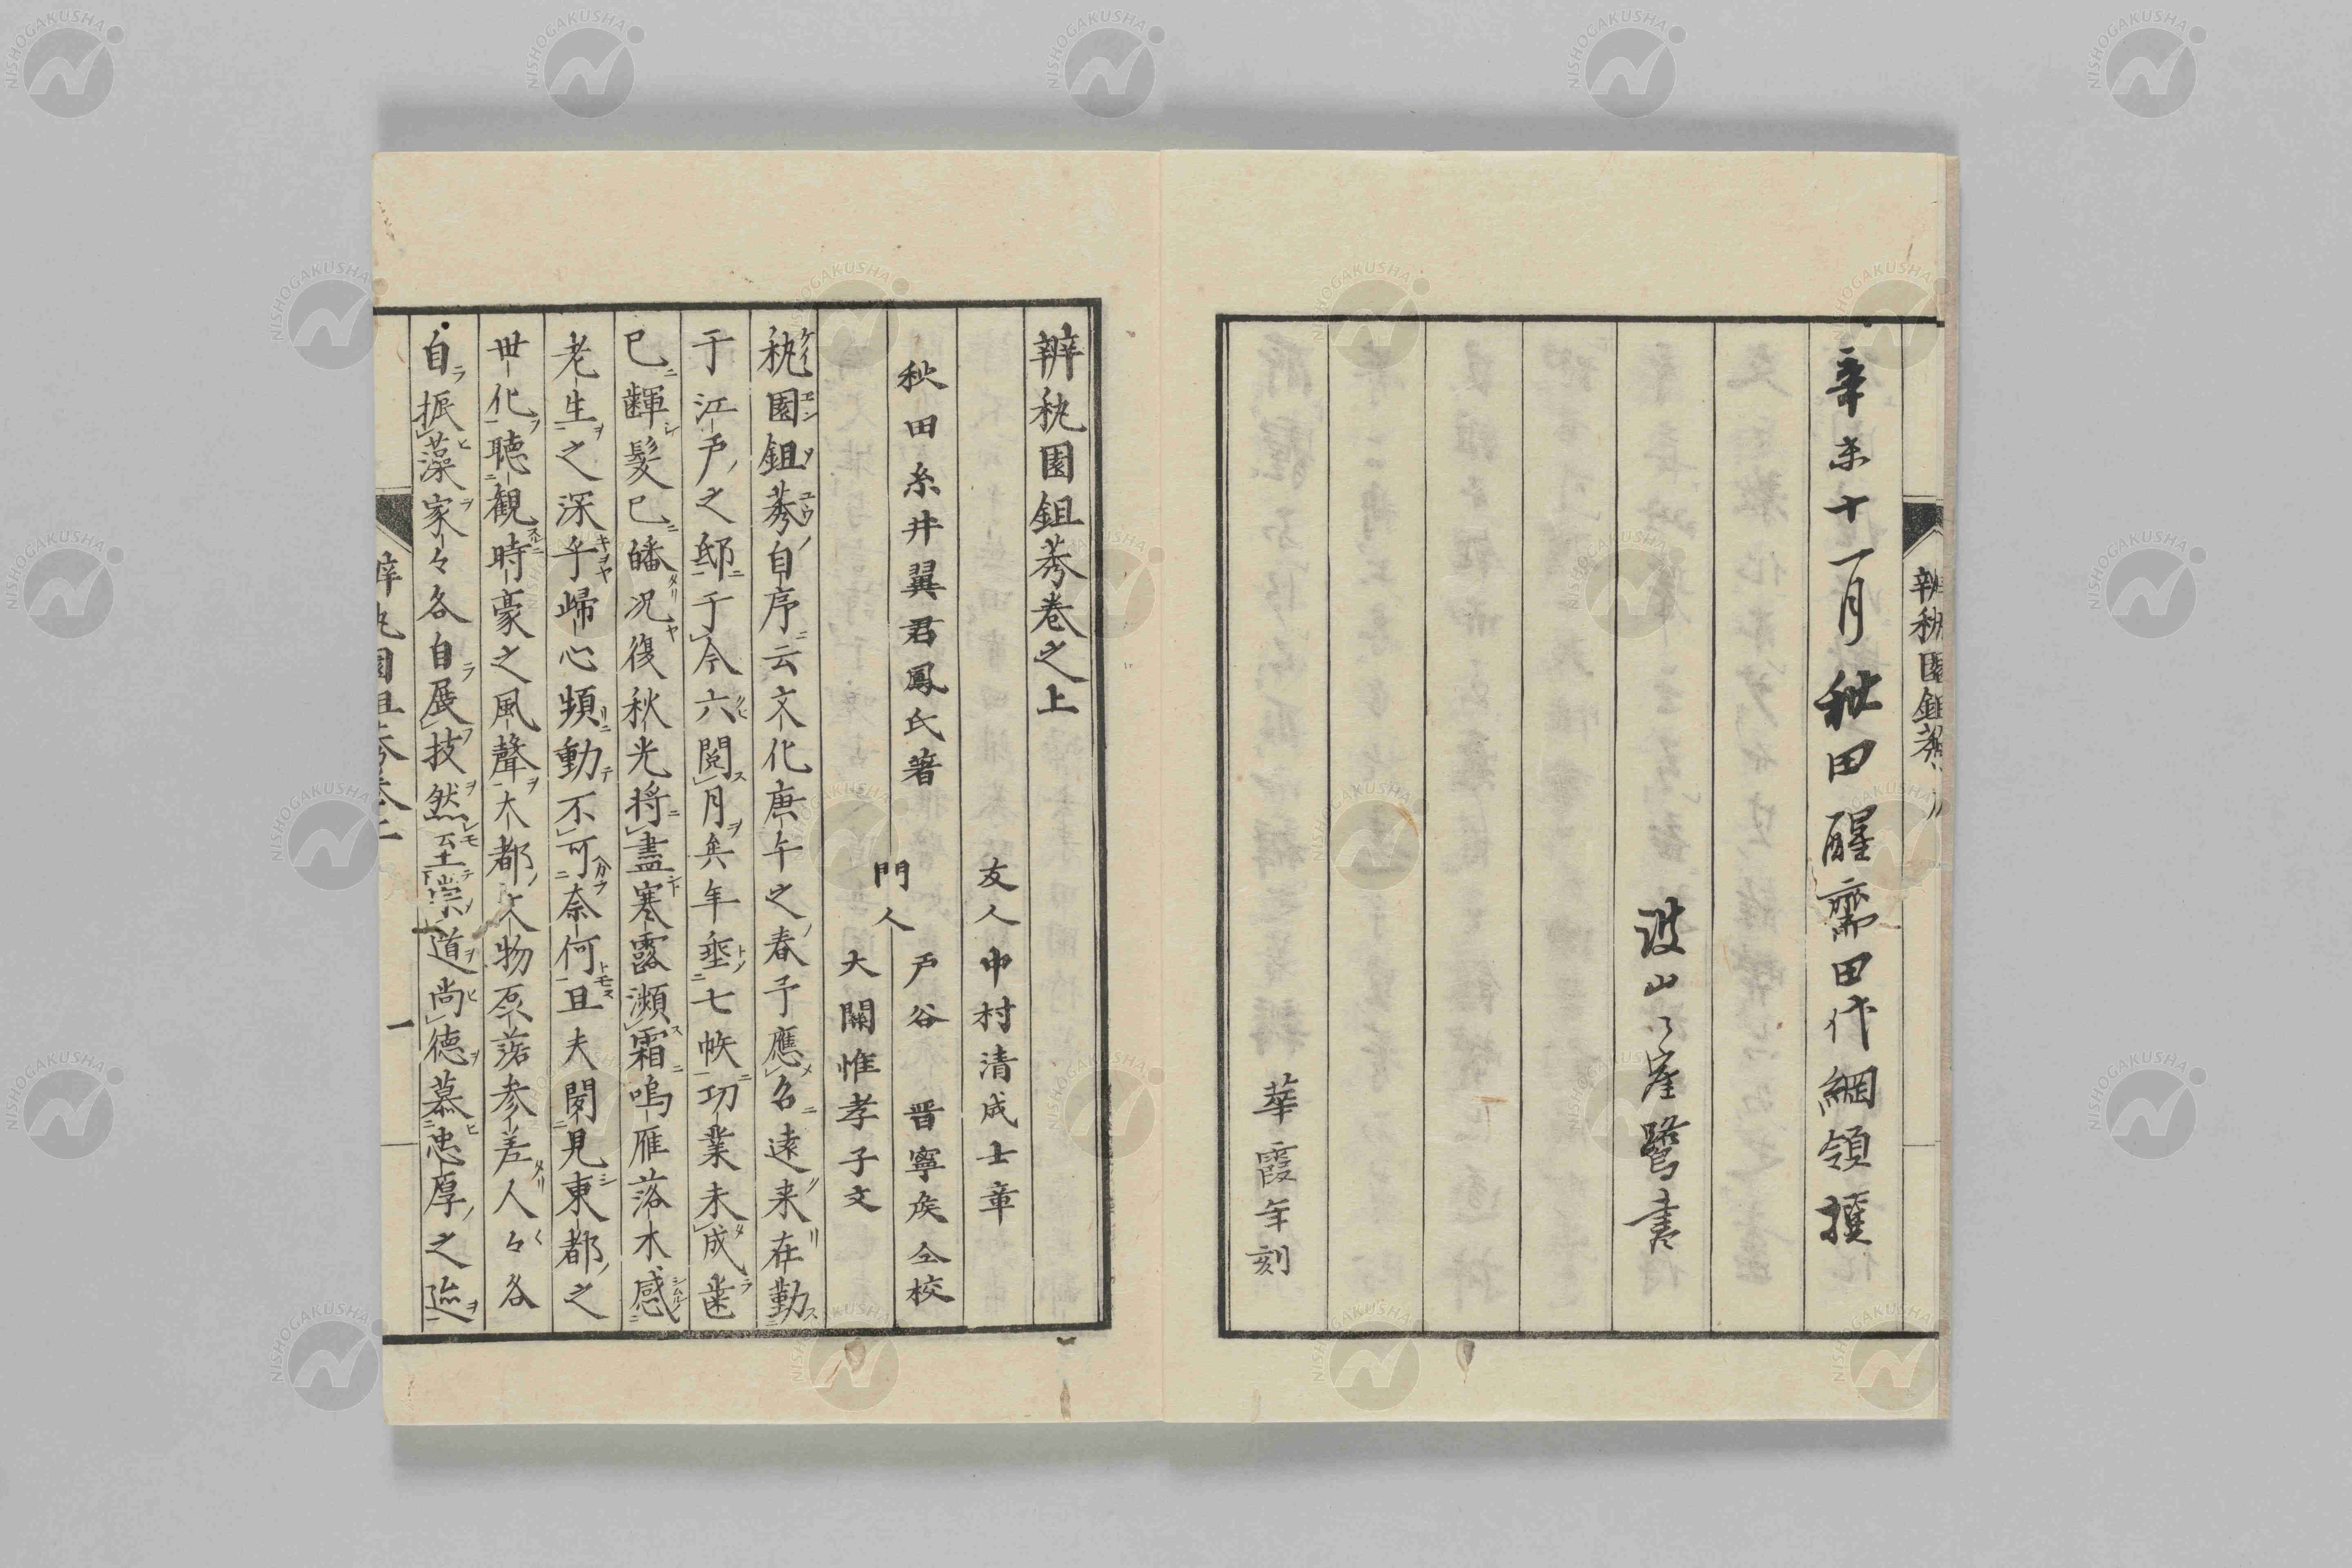 辛未十一月秋田醒齋田代綱領撰
波山ヽ崔鷺書
華霞年刻
辨秇園鉏莠
辨秇園鉏莠卷之上
友人中村清成士章
秋田糸井翼君鳳氏著
門人
戸谷晋寧疾仝校
大關惟孝子文
秇園鉏莠自序云文化庚午之春予應召遠来在勤
于江戸之邸于今六閲月矣年垂七帙功業未成歯
已齳髪已皤況復秋光将盡寒露瀕霜鳴雁落木感
老生之深乎歸心頻動不可奈何且夫閲見東都之
世化聴観時豪之風聲大都人物磊落参差人々各
自振藻家々各自展技然至崇道尚德慕忠厚之迹
一
NISHOGAKUSHA